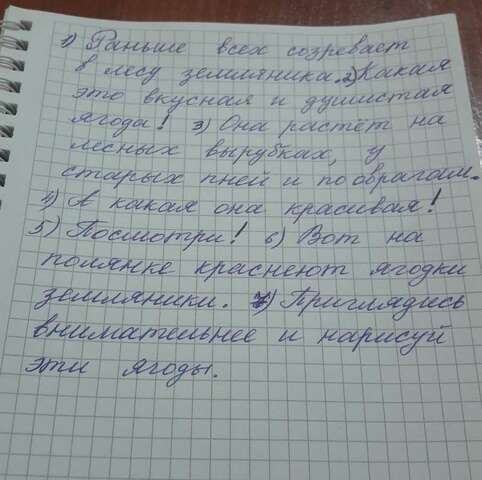 1) Раньше всех созревает
в лесу земляника. 2) Какая
это вкусная и душистая
ягода! 3) Она растёт на
лесных вырубках, у
старых пней и по оврагам.
4) А какая она красивая!
5) Посмотри! 6) Вот на
полянке краснеют ягодки
земляники. 7) Приглядись
внимательнее и нарисуй
эти ягоды.